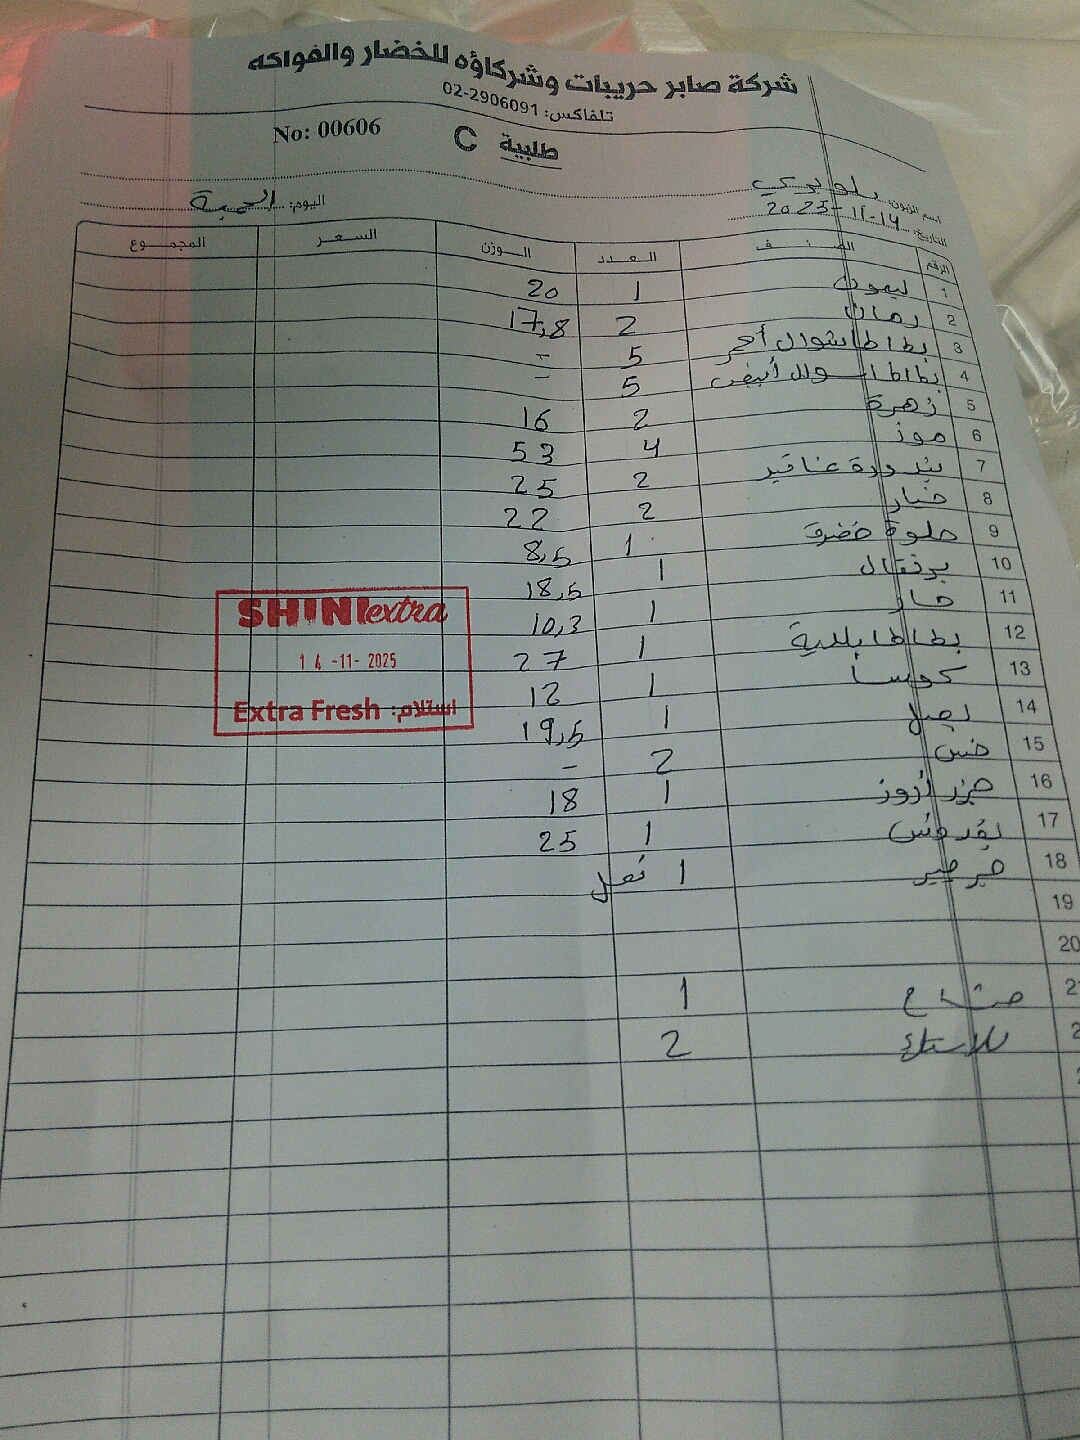 شركة صابر حريبات وشركاؤه للخضار والفواكه
تلفاكس: 02-2906091
طلبية C No: 00606
اسم الزبون:
اليوم: الجمعة
التاريخ: 14-11-2025
الرقم الصنف العدد الوزن السعر المجموع
1 ليمون 1 20
2 رمان 2 17,8
3 بطاطا شوال أحمر 5 -
4 بطاطا شوال أبيض 5 -
5 زهرة 2 16
6 موز 4 53
7 بندورة عناقيد 2 25
8 خيار 2 22
9 حلوة خضرة 1 8,5
10 برتقال 1 18,5
11 حار 1 10,3
12 بطاطا بلدية 1 27
13 كوسا 1 12
14 بصل 1 19,5
15 خس 2 -
16 جزر أروز 1 18
17 بقدونس 1 25
18 جرجير 1
19
20
21 مشتاح 1
2
SHINI extra
14-11-2025
استلام: Extra Fresh